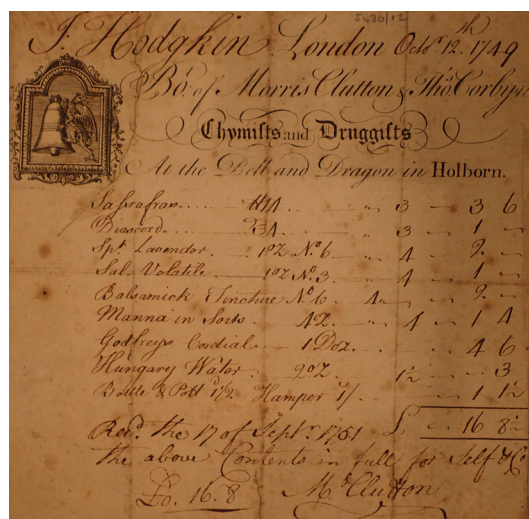 5430/12
J. Hodgkin London Octor. 12th 1749
Bo. of Morris Clutton & Thos. Corbyn
Chymists and Druggists
At the Bell and Dragon in Holborn.
Sassafras 3 3 6
Diascord 3 1
Spt. Lavendor 1oz No. 6 4 2
Sal Volatile 1oz No. 3 4 1
Balsamick Tincture No. 6 2
Manna in Sorts 4 1 4
Godfreys Cordial 1 Doz. 4 6
Hungary Water 2oz 1½ 3
Bottle & Pott Hamper 1/ 1 1½
£ 16 8½
Recd. the 17 of Septr. 1751
the above Contents in full for Self & Co
£0. 16. 8 Mo. Clutton